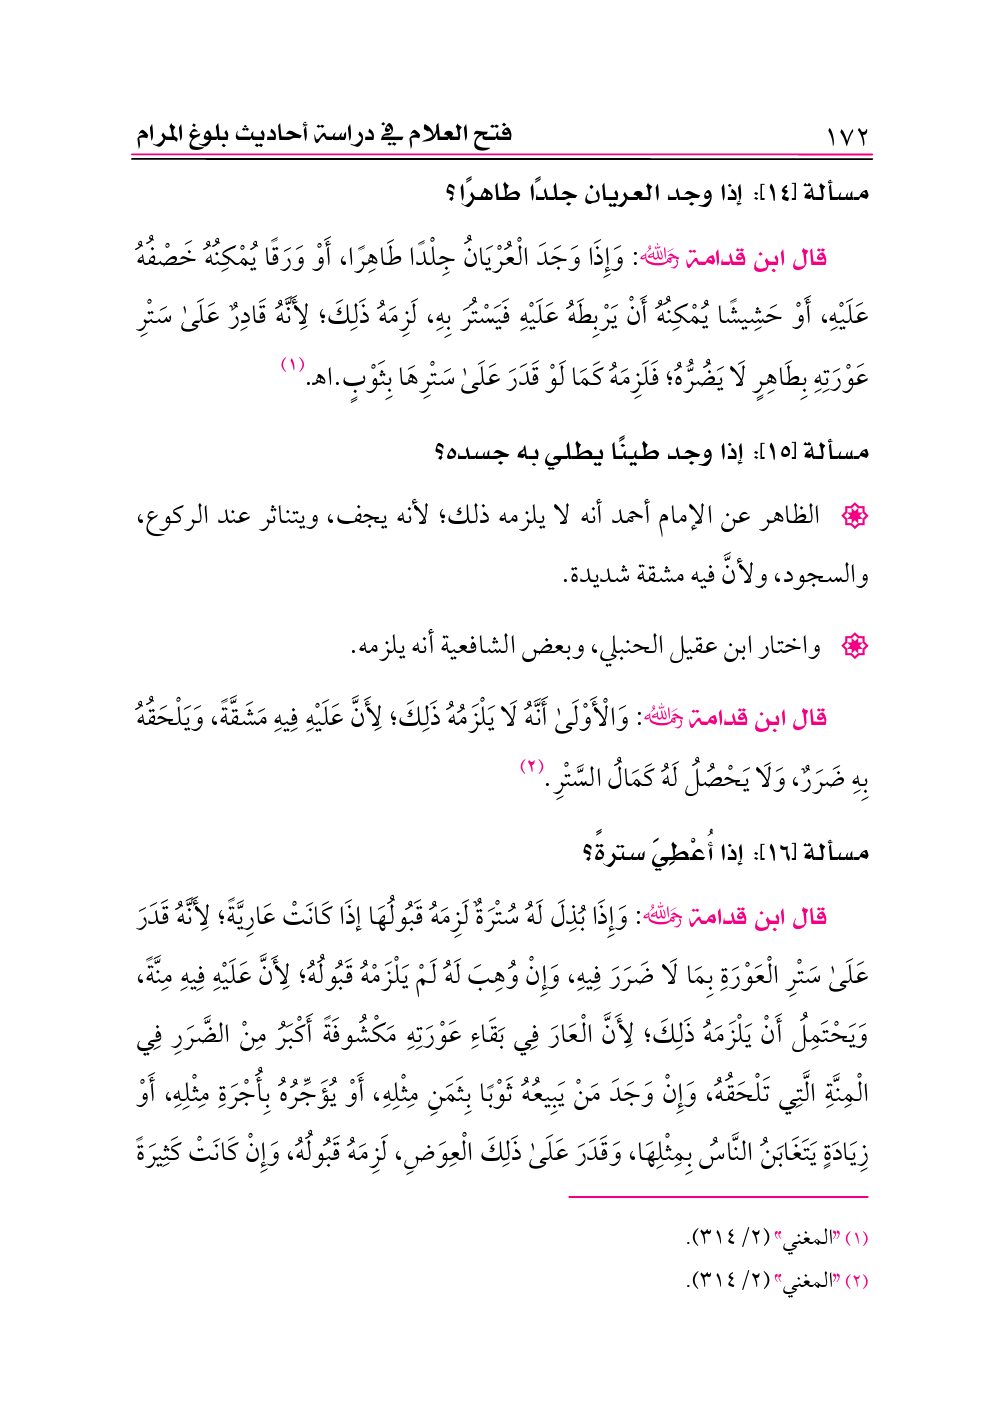 ١٧٢ فتح العلام في دراسة أحاديث بلوغ المرام
مسألة [١٤]: إذا وجد العريان جلدًا طاهرًا؟
قال ابن قدامة رحمه الله: وَإِذَا وَجَدَ الْعُرْيَانُ جِلْدًا طَاهِرًا، أَوْ وَرَقًا يُمْكِنُهُ خَصْفُهُ
عَلَيْهِ، أَوْ حَشِيشًا يُمْكِنُهُ أَنْ يَرْبِطَهُ عَلَيْهِ فَيَسْتُرَ بِهِ، لَزِمَهُ ذَلِكَ؛ لِأَنَّهُ قَادِرٌ عَلَىٰ سَتْرِ
عَوْرَتِهِ بِطَاهِرٍ لَا يَضُرُّهُ؛ فَلَزِمَهُ كَمَا لَوْ قَدَرَ عَلَىٰ سَتْرِهَا بِثَوْبٍ.اهـ.(١)
مسألة [١٥]: إذا وجد طينًا يطلي به جسده؟
۞ الظاهر عن الإمام أحمد أنه لا يلزمه ذلك؛ لأنه يجف، ويتناثر عند الركوع،
والسجود، ولأنَّ فيه مشقة شديدة.
۞ واختار ابن عقيل الحنبلي، وبعض الشافعية أنه يلزمه.
قال ابن قدامة رحمه الله: وَالْأَوْلَىٰ أَنَّهُ لَا يَلْزَمُهُ ذَلِكَ؛ لِأَنَّ عَلَيْهِ فِيهِ مَشَقَّةً، وَيَلْحَقُهُ
بِهِ ضَرَرٌ، وَلَا يَحْصُلُ لَهُ كَمَالُ السَّتْرِ.(٢)
مسألة [١٦]: إذا أُعْطِيَ سترةً؟
قال ابن قدامة رحمه الله: وَإِذَا بُذِلَ لَهُ سُتْرَةٌ لَزِمَهُ قَبُولُهَا إذَا كَانَتْ عَارِيَّةً؛ لِأَنَّهُ قَدَرَ
عَلَىٰ سَتْرِ الْعَوْرَةِ بِمَا لَا ضَرَرَ فِيهِ، وَإِنْ وُهِبَ لَهُ لَمْ يَلْزَمْهُ قَبُولُهُ؛ لِأَنَّ عَلَيْهِ فِيهِ مِنَّةً،
وَيَحْتَمِلُ أَنْ يَلْزَمَهُ ذَلِكَ؛ لِأَنَّ الْعَارَ فِي بَقَاءِ عَوْرَتِهِ مَكْشُوفَةً أَكْبَرُ مِنْ الضَّرَرِ فِي
الْمِنَّةِ الَّتِي تَلْحَقُهُ، وَإِنْ وَجَدَ مَنْ يَبِيعُهُ ثَوْبًا بِثَمَنِ مِثْلِهِ، أَوْ يُؤَجِّرُهُ بِأُجْرَةِ مِثْلِهِ، أَوْ
زِيَادَةٍ يَتَغَابَنُ النَّاسُ بِمِثْلِهَا، وَقَدَرَ عَلَىٰ ذَلِكَ الْعِوَضِ، لَزِمَهُ قَبُولُهُ، وَإِنْ كَانَتْ كَثِيرَةً
(١) "المغني" (٢/ ٣١٤).
(٢) "المغني" (٢/ ٣١٤).